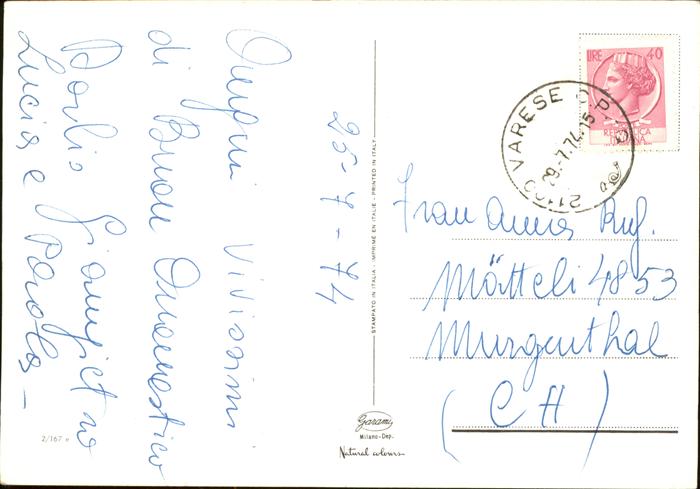 Auguri vivissimi
di Buon Onomastico
Lucia e Paola
25-7-74
LIRE 40
REPUBBLICA
ITALIANA
21100 VARESE C.P.
29.7.74.15
Frau Anna Ruf.
Mätteli 4853
Murgenthal
(CH)
STAMPATO IN ITALIA - IMPRIME EN ITALIE - PRINTED IN ITALY
Garami
Milano-Dep.
Natural colours
2/167